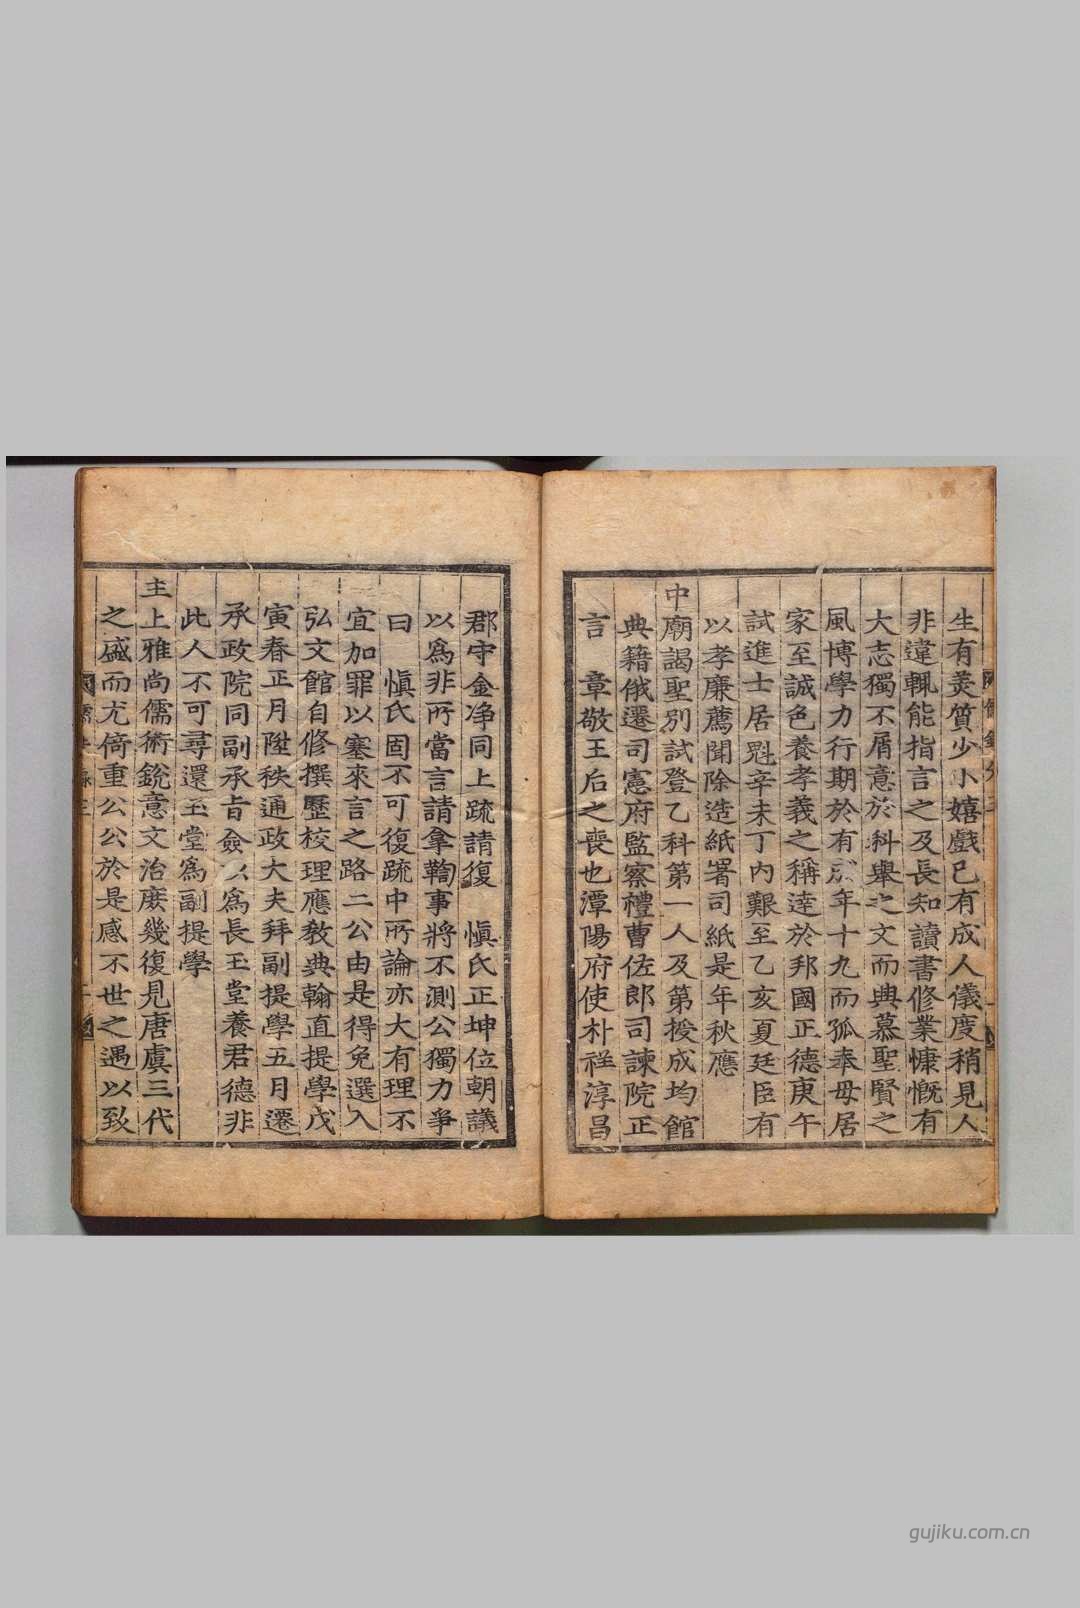 生有美質少小嬉戲已有成人儀度稍見人
非違輒能指言之及長知讀書修業慷慨有
大志獨不屑意於科舉之文而典慕聖賢之
風博學力行期於有成年十九而孤奉母居
家至誠色養孝義之稱達於邦國正德庚午
試進士居魁辛未丁內艱至乙亥夏廷臣有
以孝廉薦聞除造紙署司紙是年秋應
中廟謁聖別試登乙科第一人及第授成均館
典籍俄遷司憲府監察禮曹佐郎司諫院正
言 章敬王后之喪也潭陽府使朴祥淳昌
郡守金净同上疏請復 愼氏正坤位朝議
以爲非所當言請拿鞫事將不測公獨力爭
曰 愼氏固不可復疏中所論亦大有理不
宜加罪以塞來言之路二公由是得免選入
弘文館自修撰歷校理應教典翰直提學戊
寅春正月陞秩通政大夫拜副提學五月遷
承政院同副承旨僉以爲長玉堂養君德非
此人不可尋還玉堂爲副提學
主上雅尚儒術銳意文治庶幾復見唐虞三代
之盛而尤倚重公公於是感不世之遇以致
gujiku.com.cn